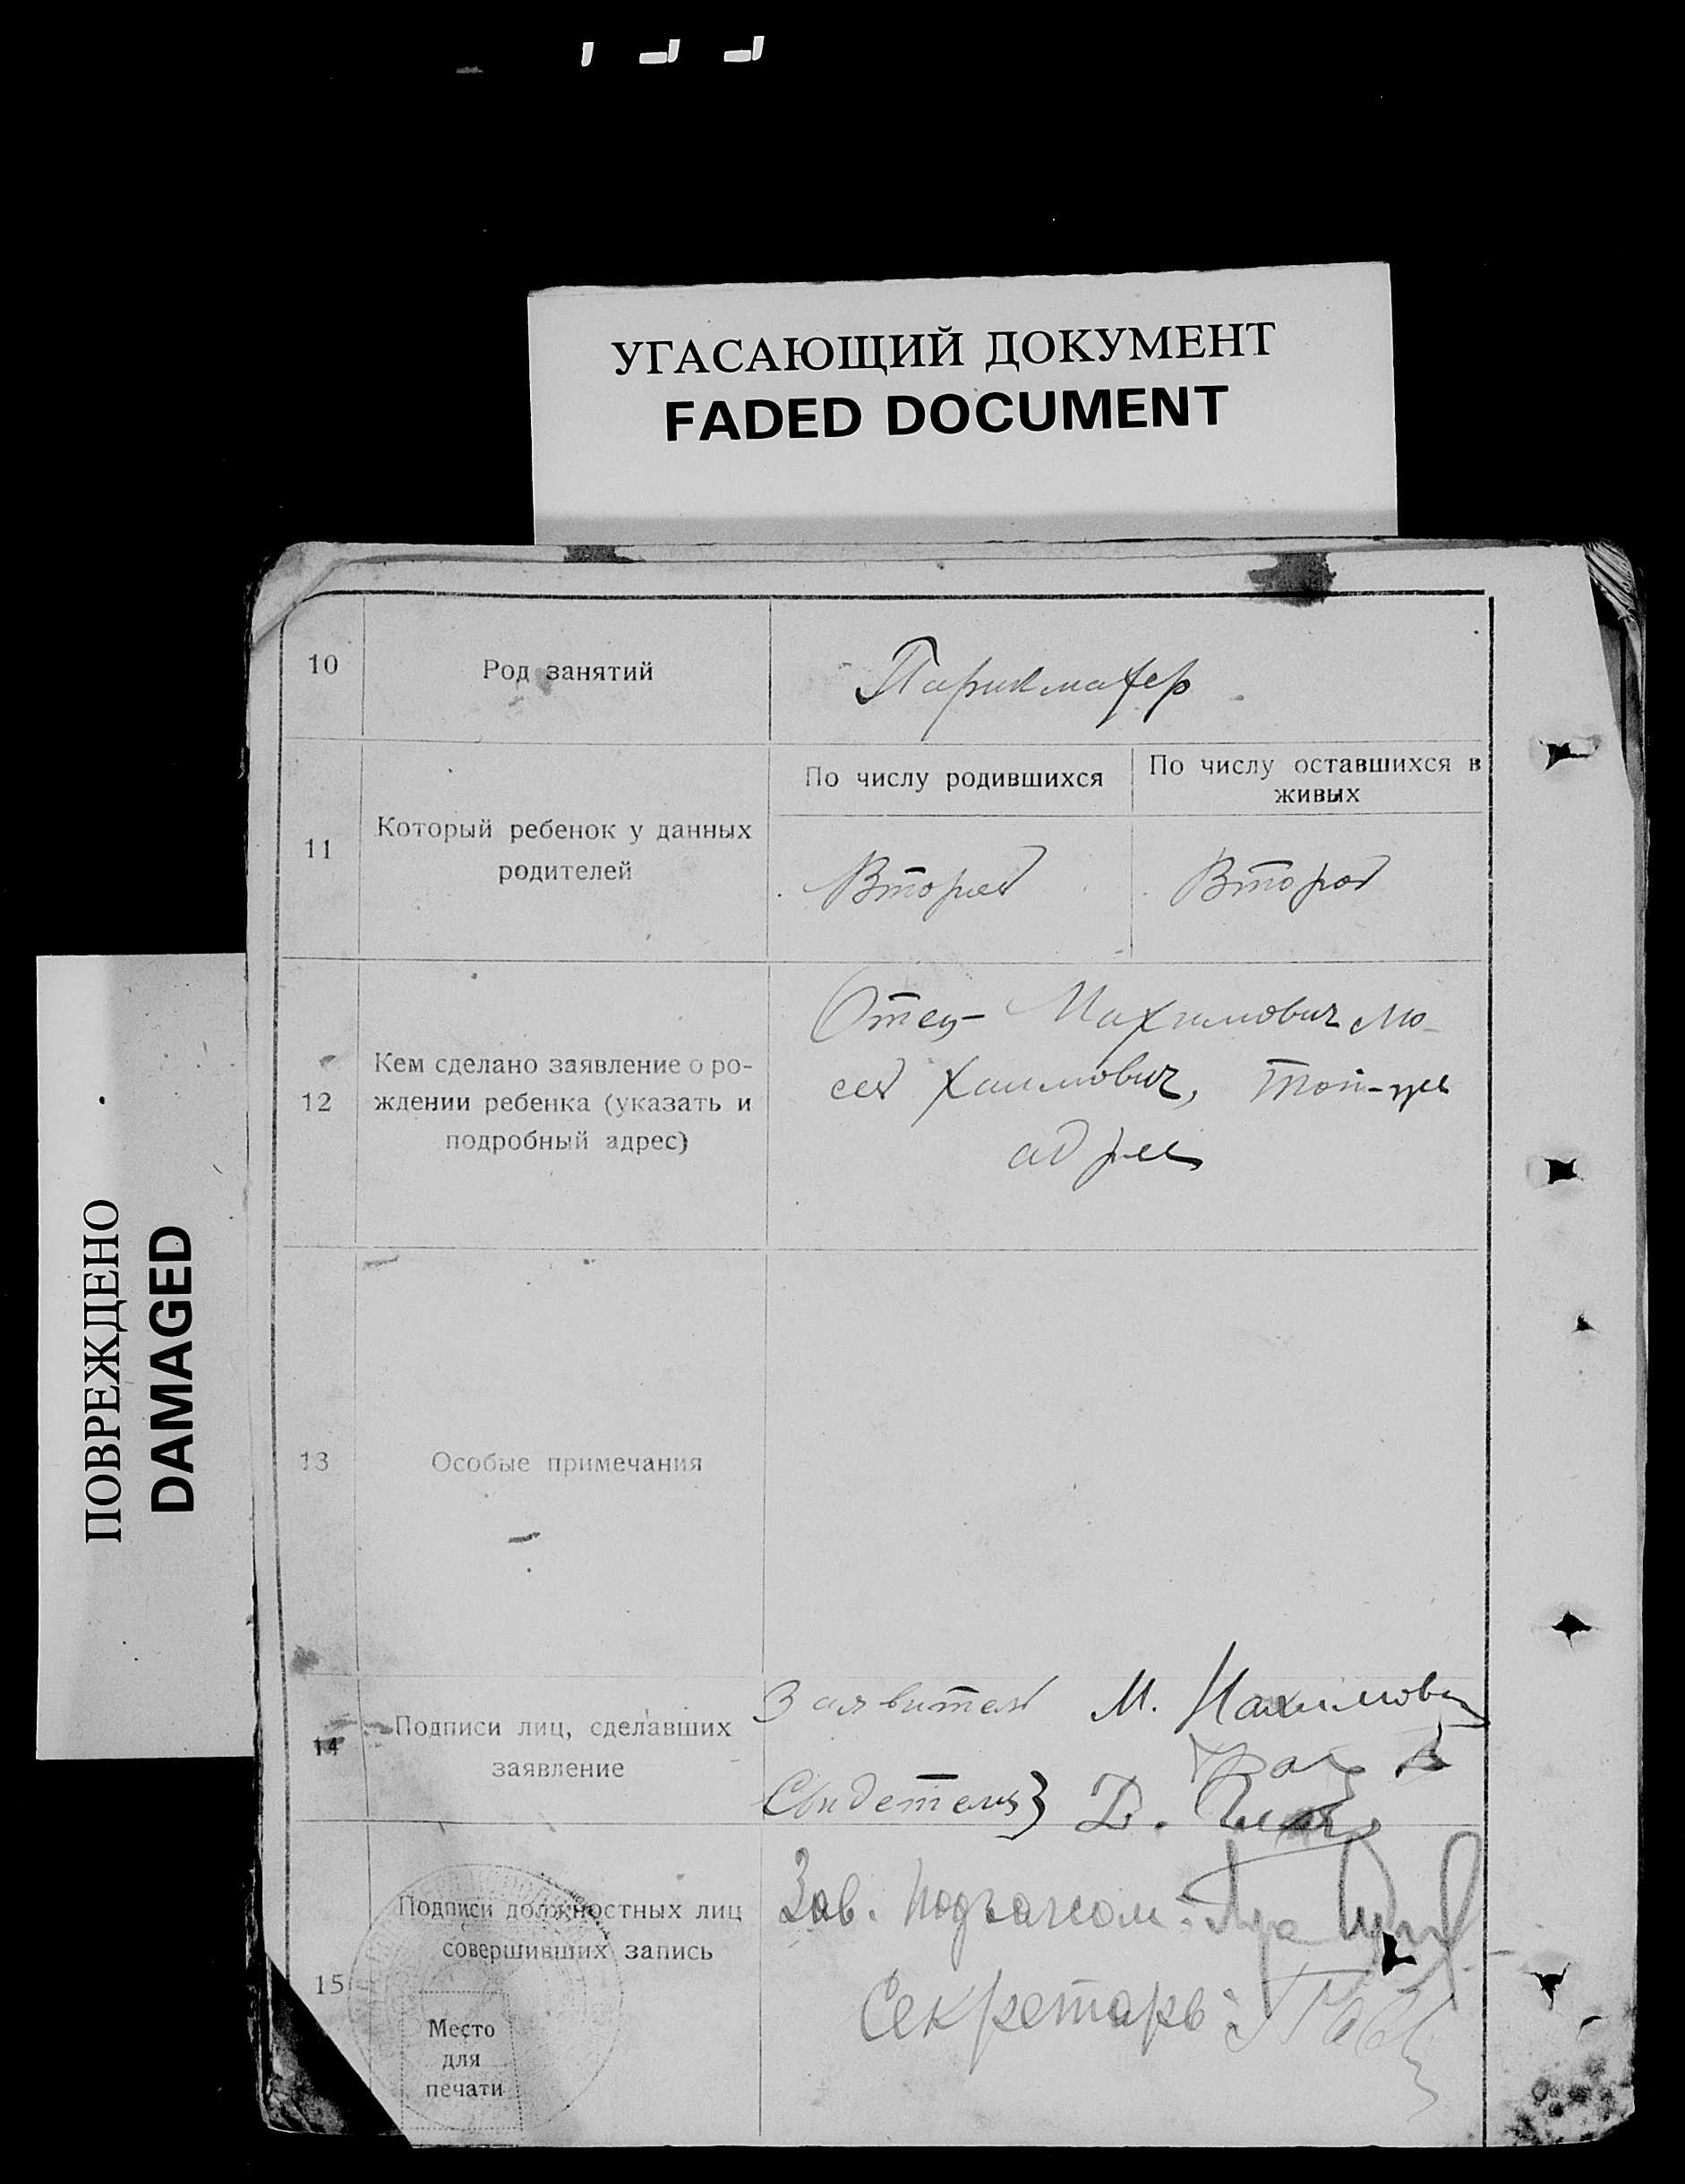 УГАСАЮЩИЙ ДОКУМЕНТ
FADED DOCUMENT
ПОВРЕЖДЕНО
DAMAGED
10
Род занятий
Парикмахер
11
Который ребенок у данных
родителей
По числу родившихся
По числу оставшихся в
живых
Второй
Второй
12
Кем сделано заявление о ро-
ждении ребенка (указать и
подробный адрес)
Отец – Нахимович Мо-
сей Хаимович,
адрес
13
Особые примечания
14
Подписи лиц, сделавших
заявление
Заявитель М. Нахимович
Свидетель} Д.
15
Подписи должностных лиц
совершивших запись
Место
для
печати
Зав. Подзагсом:
Секретарь: